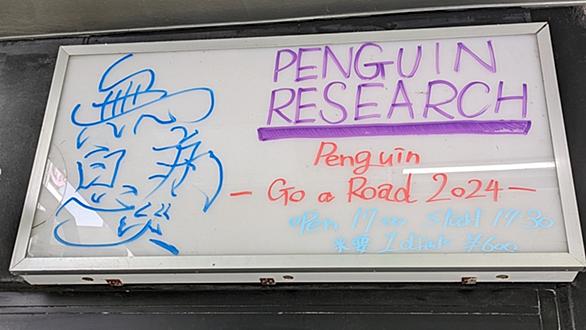 無病
息災
PENGUIN
RESEARCH
Penguin
— Go a Road 2024 —
open 17:00 start 17:30
※要 1drink ¥600